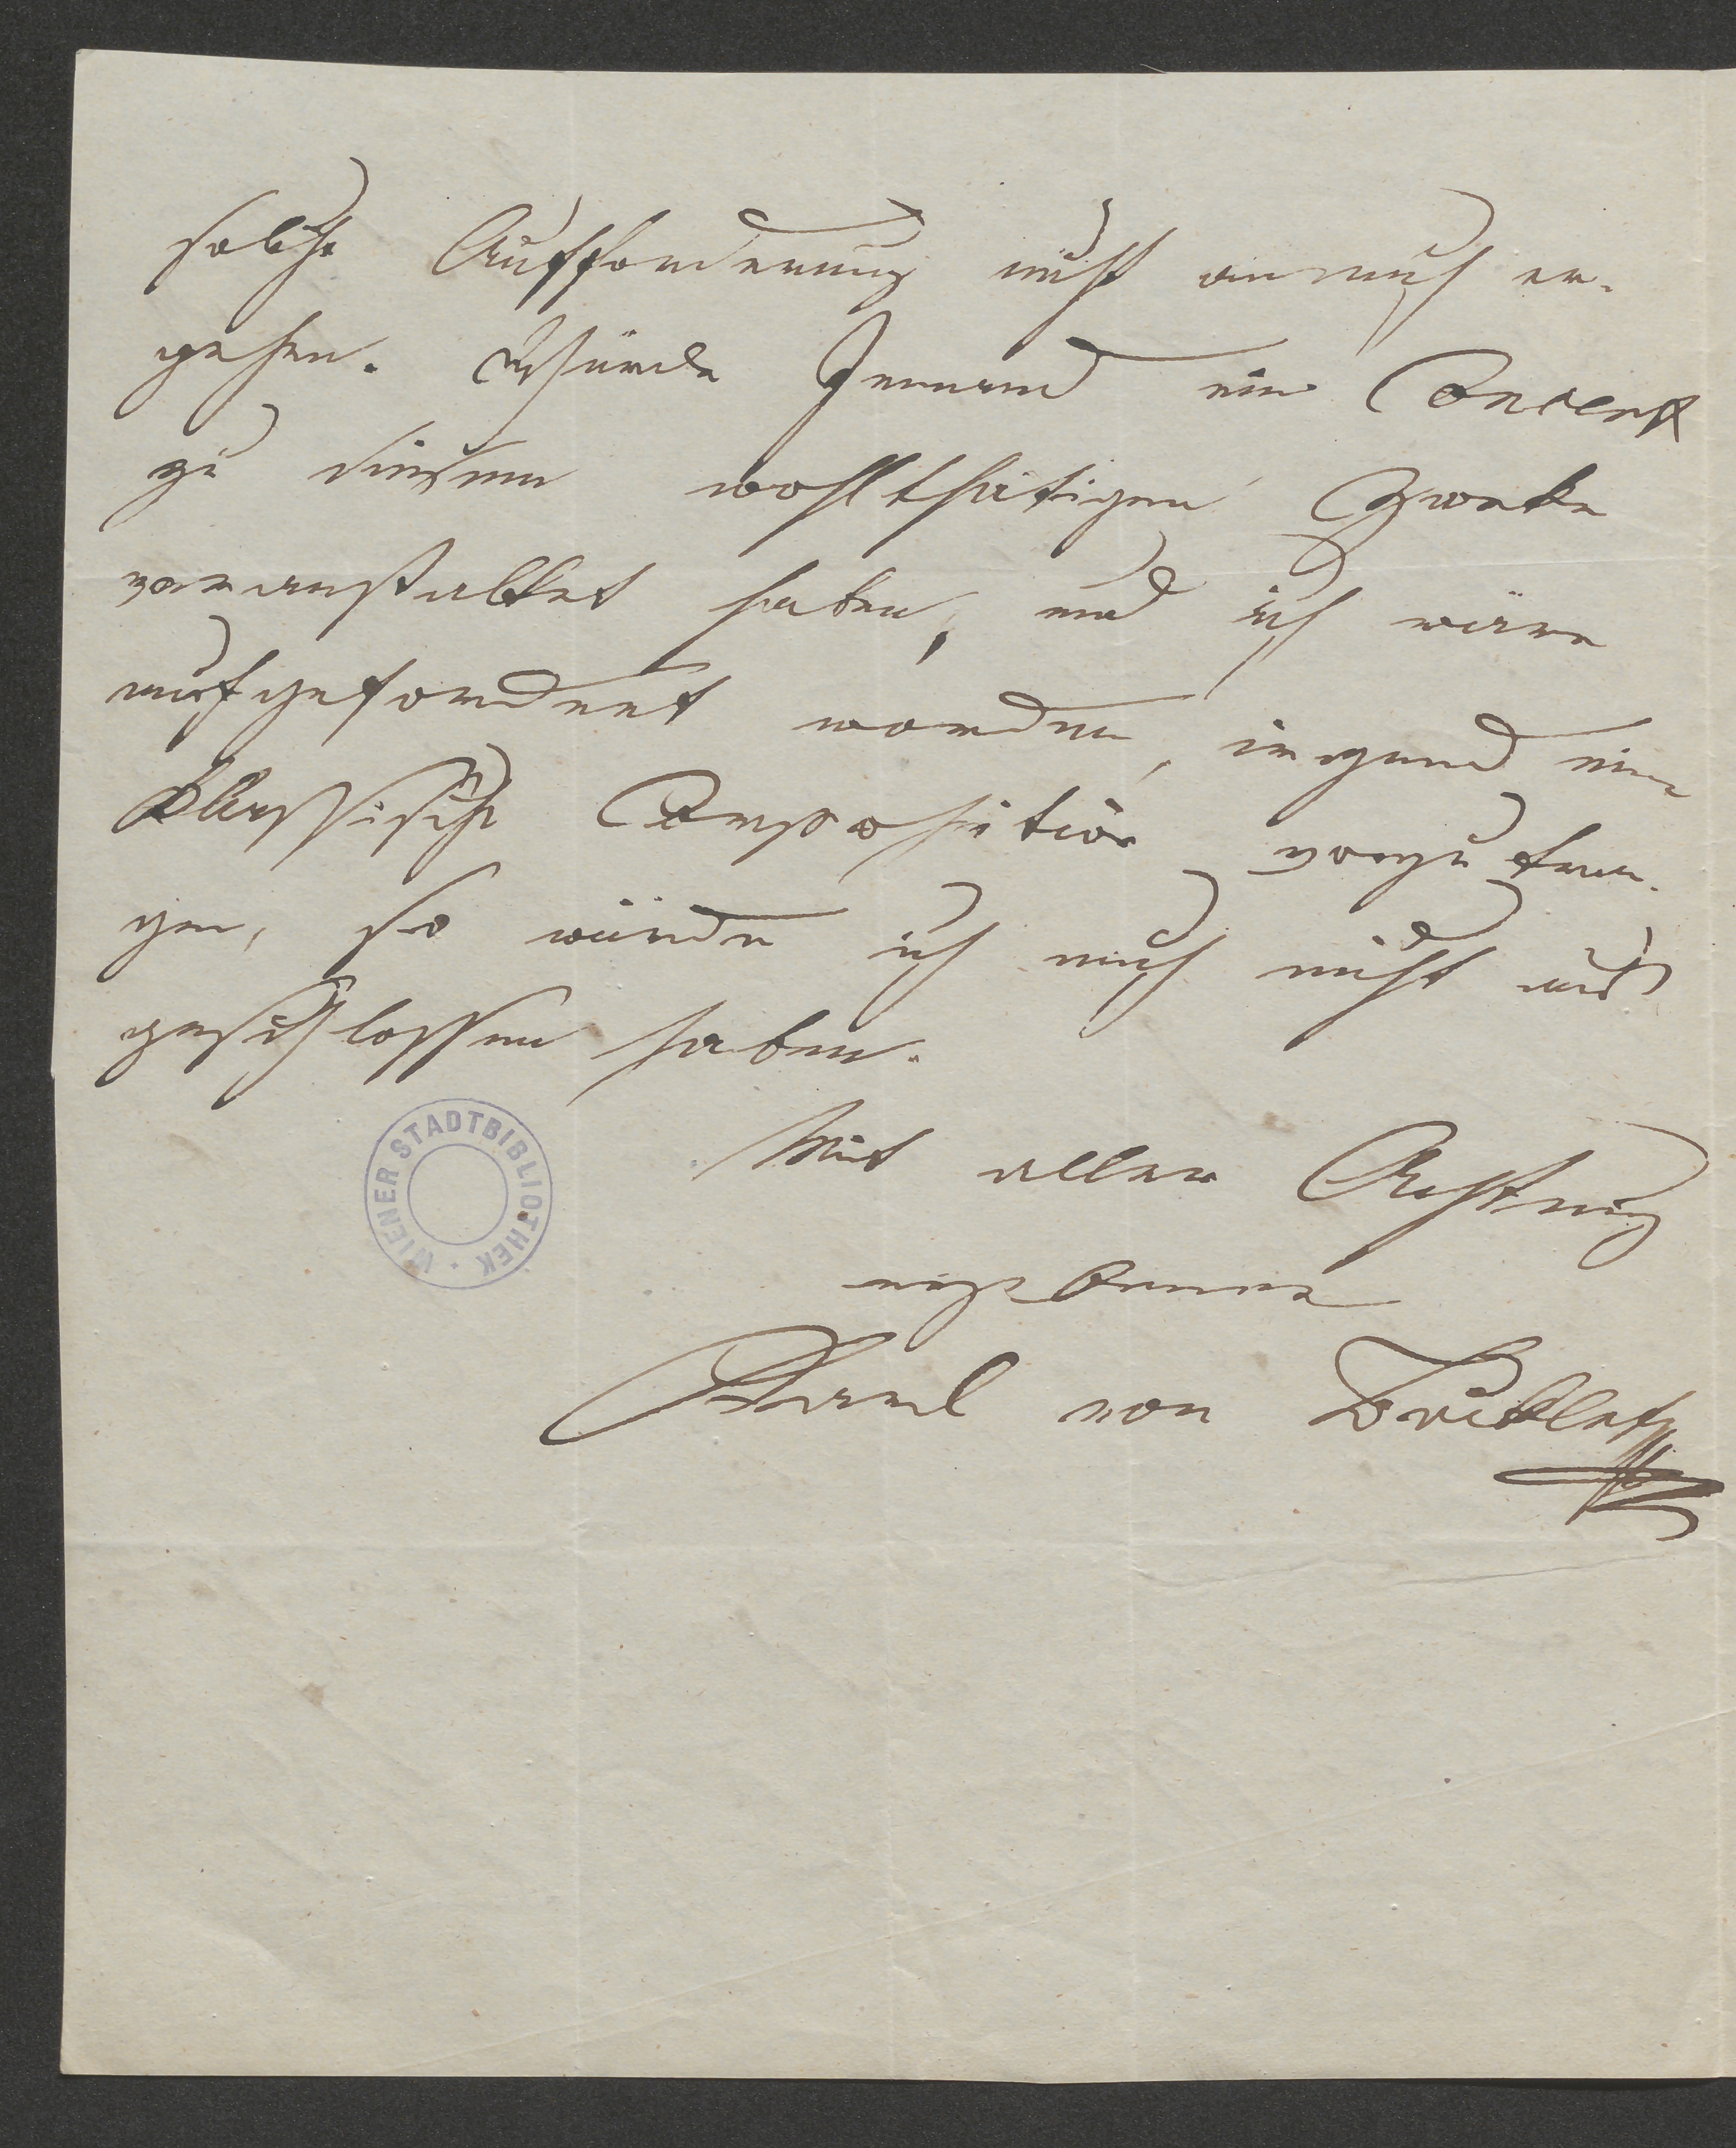 solche Aufforderung nicht an mich er-
gehen. Würde Jemand ein Concert
zu diesem wohlthätigen Zweke
veranstalltet haben, und ich wäre
aufgefordert worden, irgend eine
klassische Composition vorzutra-
gen, so würde ich mich nicht aus
geschlossen haben.
Mit aller Achtung
ergebener
Karl von Bocklet
WIENER STADTBIBLIOTHEK